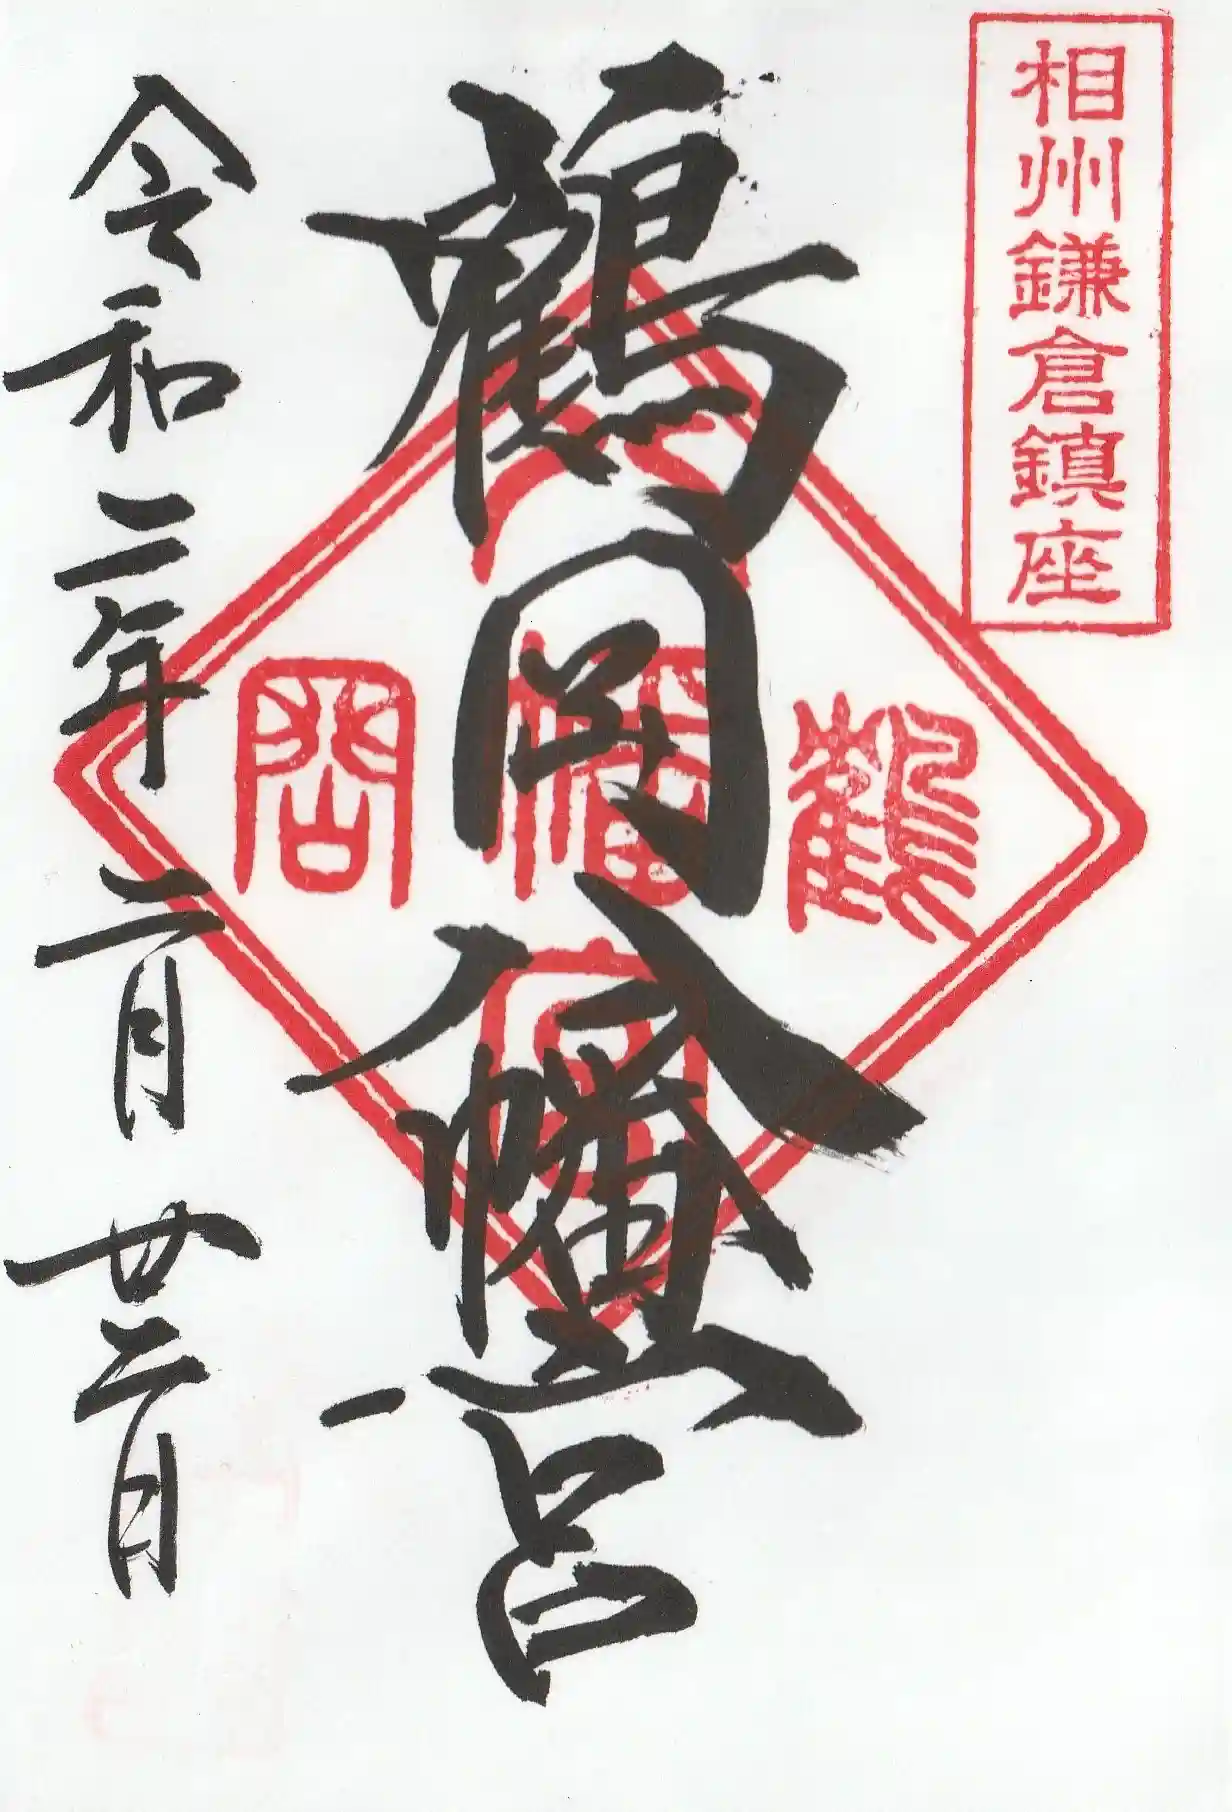 相州鎌倉鎮座
鶴岡八幡宮
鶴
八幡宮
岡
令和二年二月廿二日